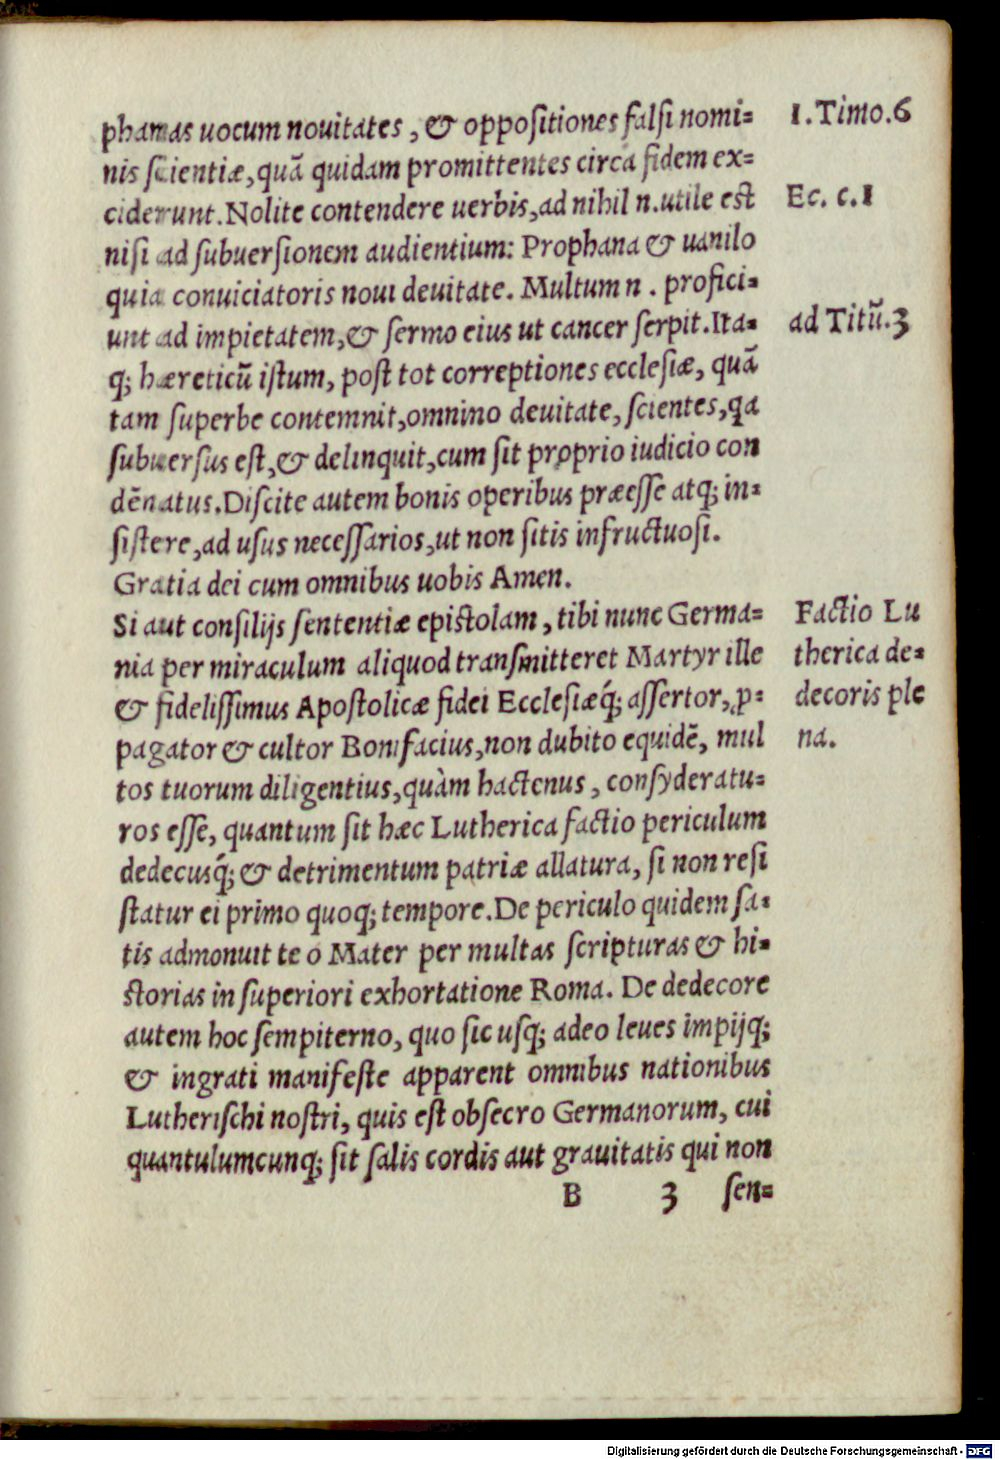 phanas uocum nouitates, & oppositiones falsi nomi=
nis scientiæ, quā quidam promittentes circa fidem ex=
ciderunt. Nolite contendere uerbis, ad nihil n. utile est
nisi ad subuersionem audientium: Prophana & uanilo
quia conuiciatoris noui deuitate. Multum n. profici=
unt ad impietatem, & sermo eius ut cancer serpit. Ita=
q; hæreticū istum, post tot correptiones ecclesiæ, quā
tam superbe contemnit, omnino deuitate, scientes, qa
subuersus est, & delinquit, cum sit proprio iudicio con
dēnatus. Discite autem bonis operibus præesse atq; in=
sistere, ad usus necessarios, ut non sitis infructuosi.
Gratia dei cum omnibus uobis Amen.
Si aut consilijs sententiæ epistolam, tibi nunc Germa=
nia per miraculum aliquod transmitteret Martyr ille
& fidelissimus Apostolicæ fidei Ecclesiæq́; assertor, ꝓ=
pagator & cultor Bonifacius, non dubito equidē, mul
tos tuorum diligentius, quàm hactenus, consyderatu=
ros esse, quantum sit hæc Lutherica factio periculum
dedecusq́; & detrimentum patriæ allatura, si non resi
statur ei primo quoq; tempore. De periculo quidem sa=
tis admonuit te o Mater per multas scripturas & hi=
storias in superiori exhortatione Roma. De dedecore
autem hoc sempiterno, quo sic usq; adeo leues impijq;
& ingrati manifeste apparent omnibus nationibus
Lutherischi nostri, quis est obsecro Germanorum, cui
quantulumcunq; sit salis cordis aut grauitatis qui non
B 3 sen=
1. Timo. 6
Ec. c. 1
ad Titū. 3
Factio Lu
therica de=
decoris ple
na.
Digitalisierung gefördert durch die Deutsche Forschungsgemeinschaft - DFG